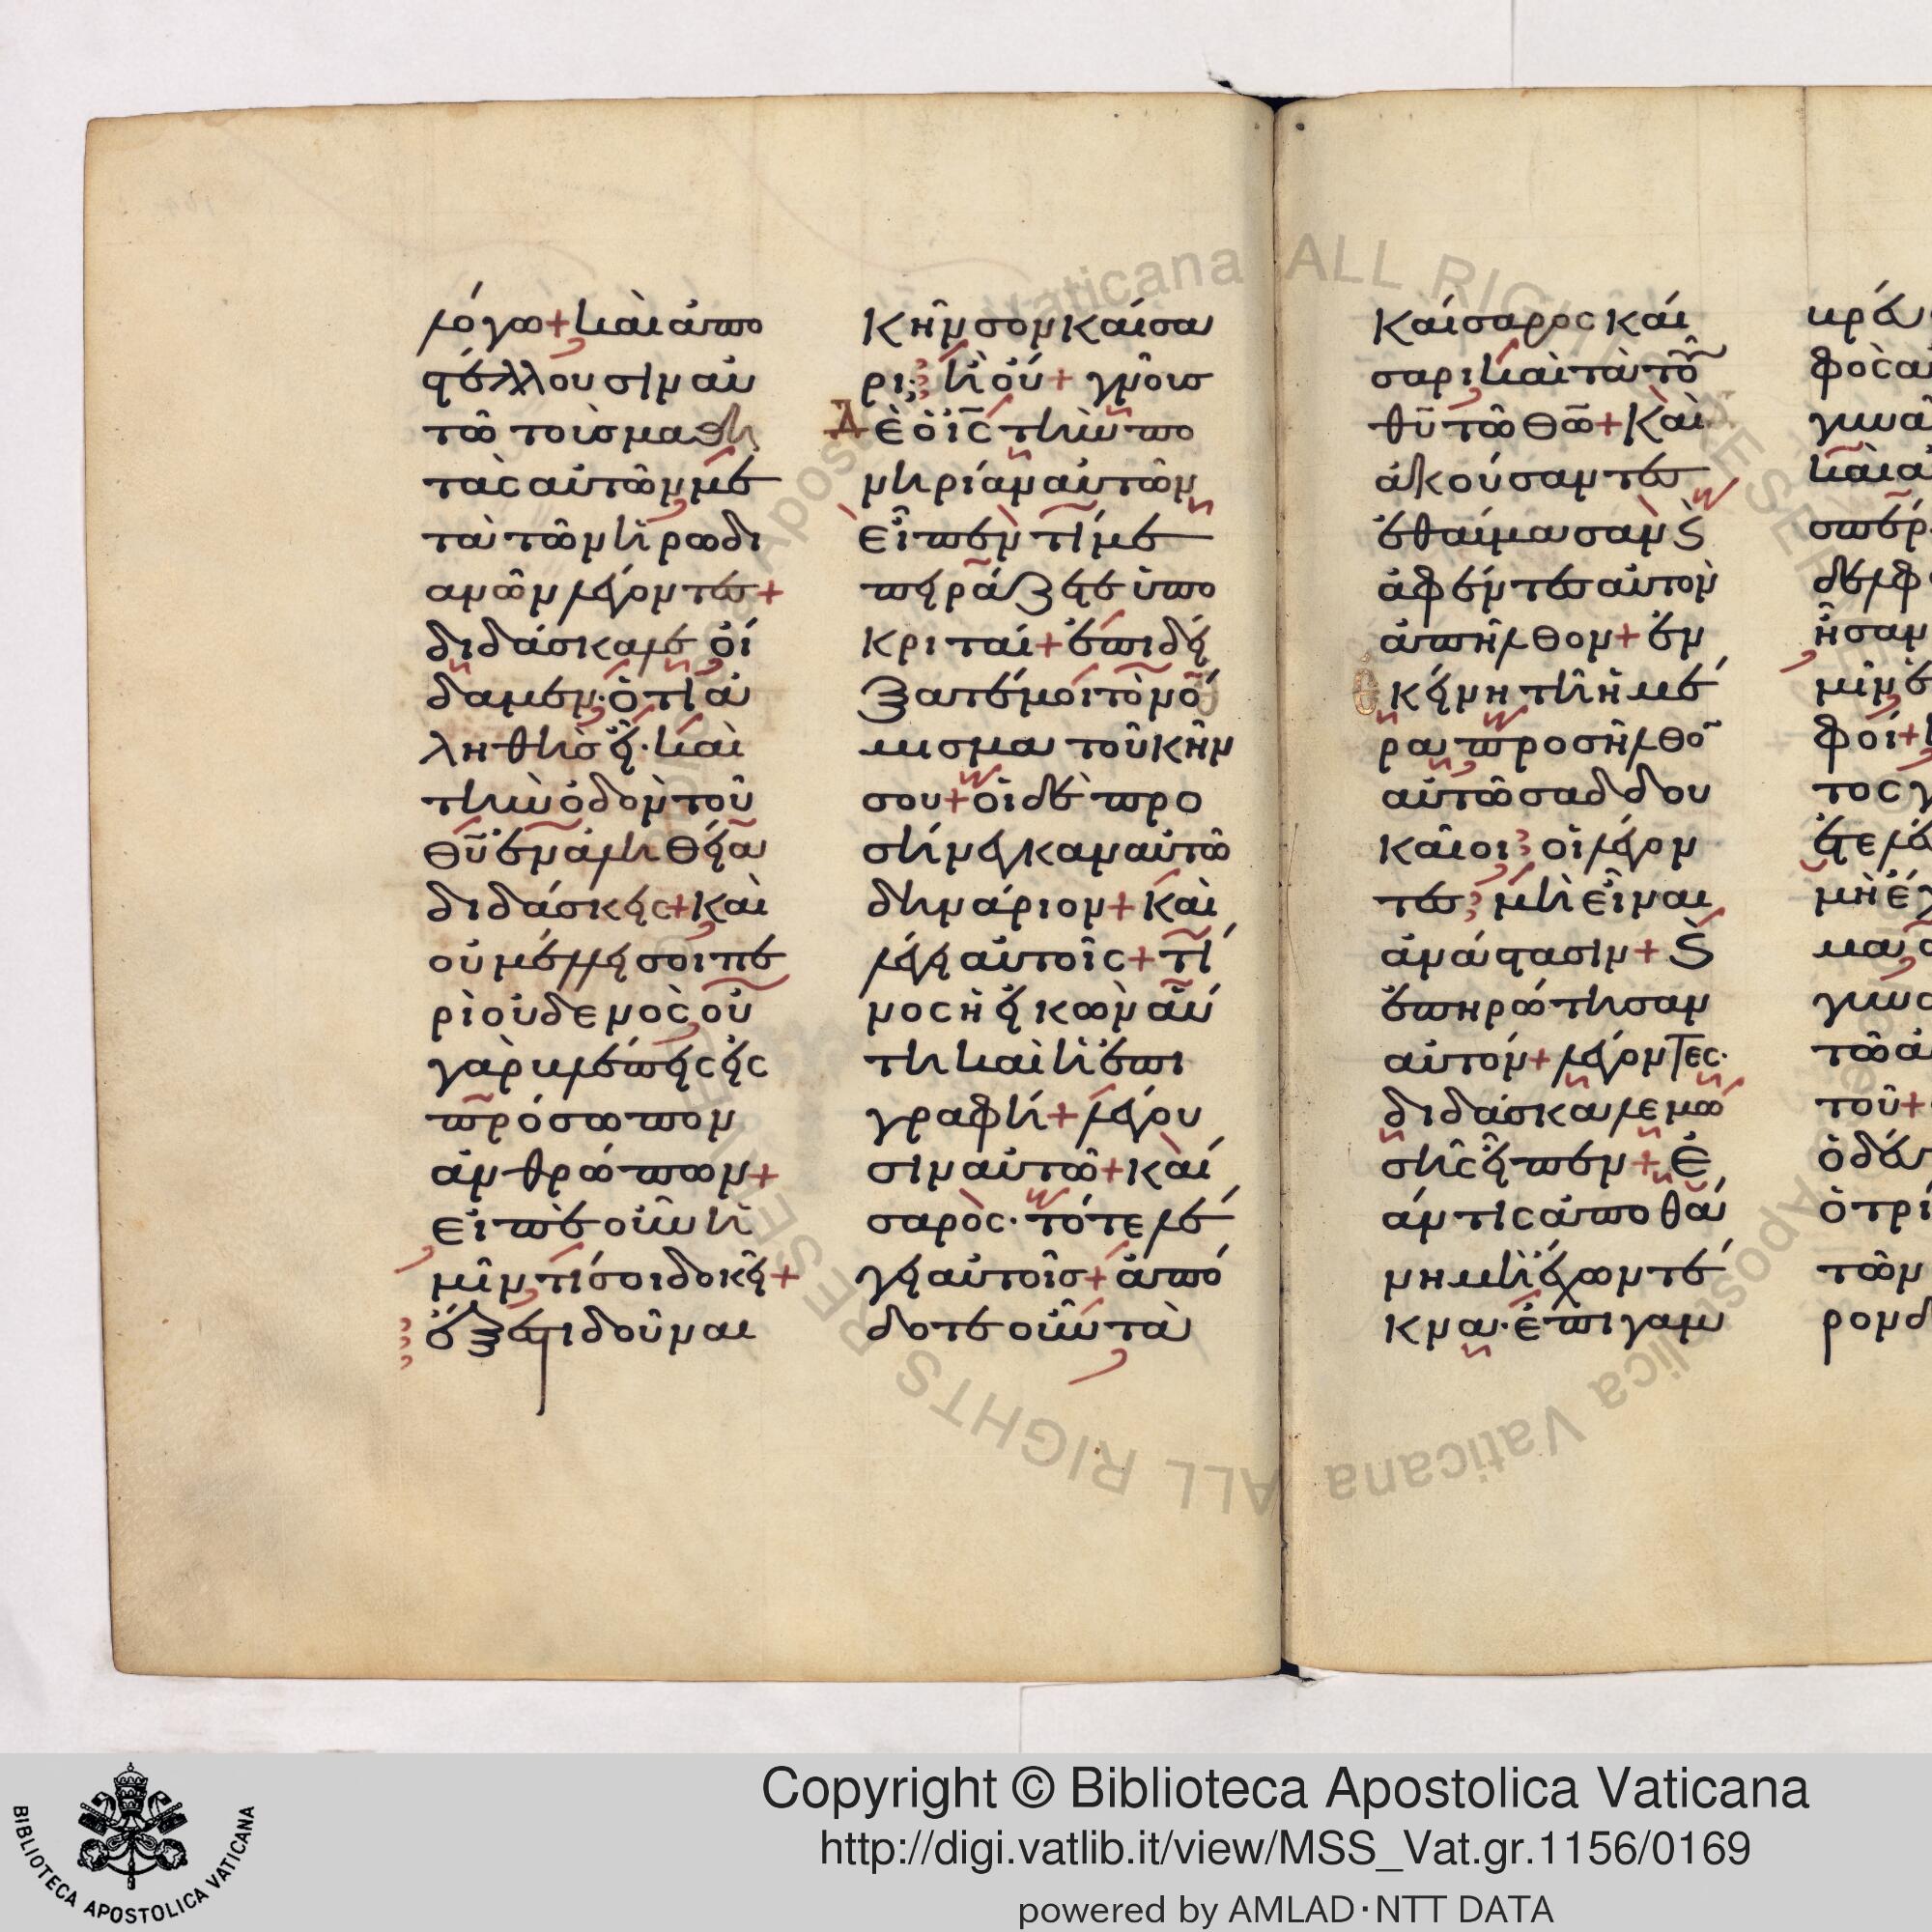 λόγω + καὶ ἀπο
στέλλουσιν αὐ
τῶ τοὺς μαθη
τὰς αὐτῶν με
τὰ τῶν ἡρωδι
ανῶν λέγοντες +
διδάσκαλε οἴ
δαμεν · ὅτι ἀ
ληθὴς εἶ · καὶ
τὴν ὁδὸν τοῦ
θῦ ἐν ἀληθεία
διδάσκεις + καὶ
οὐ μέλλει σοι πε
ρὶ οὐδενὸς οὐ
γὰρ βλέπεις εἰς
πρόσωπον
ἀνθρώπων +
εἰπὲ οὖν ἡ
μῖν τί σοι δοκεῖ +
ἔξεστι δοῦναι
κῆνσον καίσα
ρι; ἢ οὔ + γνοὺσ
Δὲ ὁ ϊς τὴν πο
νηρίαν αὐτῶν
εἶπεν τί με
πειράζετε ὑπο
κριταί + ἐπιδεί
ξατέ μοι τὸ νό
μισμα τοῦ κήν
σου + οἱ δὲ προ
σήνεγκαν αὐτῶ
δηνάριον + καὶ
λέγει αὐτοῖς + τί
νος ἡ εἰκὼν αὕ
τη καὶ ἡ ἐπι
γραφή + λέγου
σιν αὐτῶ + καί
σαρος · τότε λέ
γει αὐτοῖσ + ἀπό
δοτε οὖν τὰ
καίσαρος καί
σαρι καὶ τὰ τοῦ
θῦ τῶ θῶ + Καὶ
ἀκούσαντες
ἐθαύμασαν κ
ἀφέντες αὐτὸν
ἀπῆλθον + ἐν
ἐκείνη τῆ ἡμέ
ρα προσῆλθον
αὐτῶ σαδδου
καῖοι; οἱ λέγον
τες; μὴ εἶναι
ἀνάστασιν + κ
ἐπηρώτησαν
αὐτόν + λέγοντες ·
διδάσκαλε μω
σῆς εἶπεν + ἐ
άν τις ἀποθά
νη μὴ ἔχων τέ
κνα · ἐπιγαμ
Copyright © Biblioteca Apostolica Vaticana
http://digi.vatlib.it/view/MSS_Vat.gr.1156/0169
powered by AMLAD·NTT DATA
BIBLIOTECA APOSTOLICA VATICANA